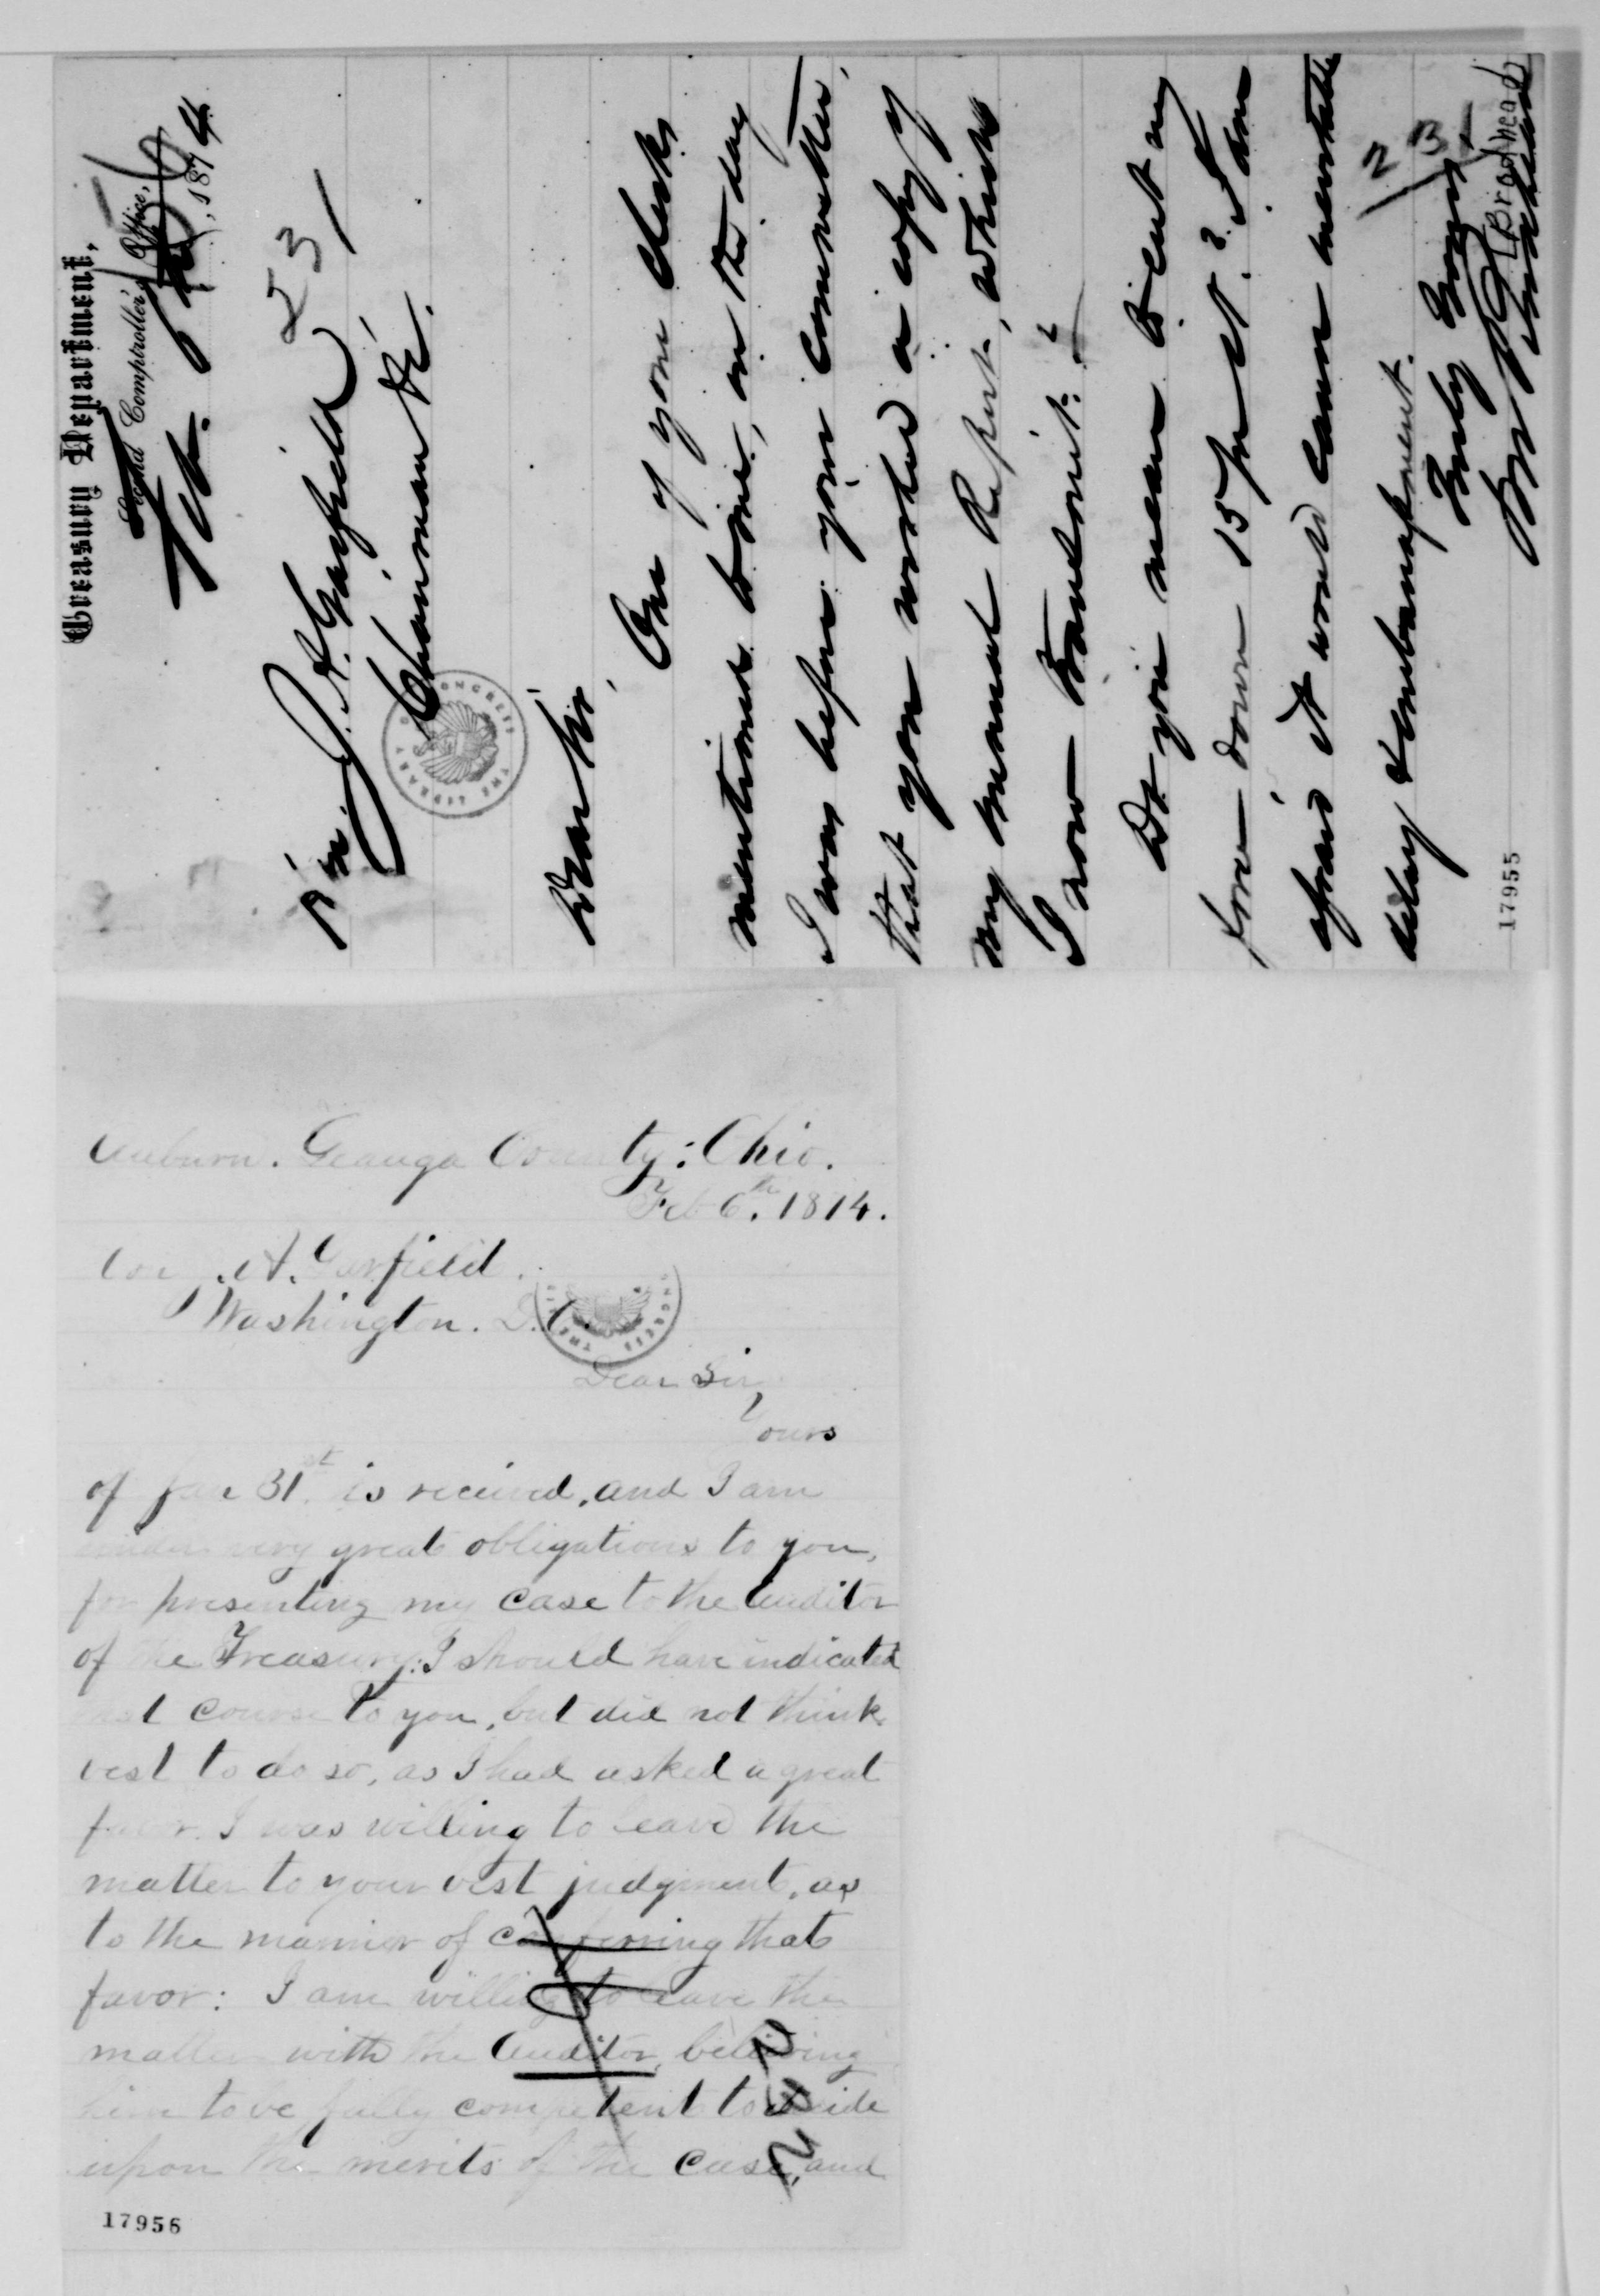 Treasury Department,
Second Comptroller's Office,
Feb. 1874.
231
Hn. J. A. Garfield
Chairman &c.
Dear Sir,
One of your clerks
mentioned to me, on the day
I was before your committee,
that you wanted a copy of
my annual Report, which
I now transmit.
Do you mean to cut my
force down 15 per ct.? I am
afraid it would cause
delay & embarrassment.
Truly Yours,
[Brodhead]
17955
Auburn. Geauga County: Ohio.
Feb 6th. 1874.
A. Garfield.
Washington. D.C.
Dear Sir,
Yours
of Jan 31st. is received, and I am
under very great obligations to you,
for presenting my case to the Auditor
of the Treasury: I should have indicated
that course to you, but did not think
best to do so, as I had asked a great
favor. I was willing to leave the
matter to your best judgment, as
to the manner of conferring that
favor: I am willing to leave the
matter with the Auditor, believing
him to be fully competent to decide
upon the merits of the case, and
17956
THE LIBRARY CONGRESS